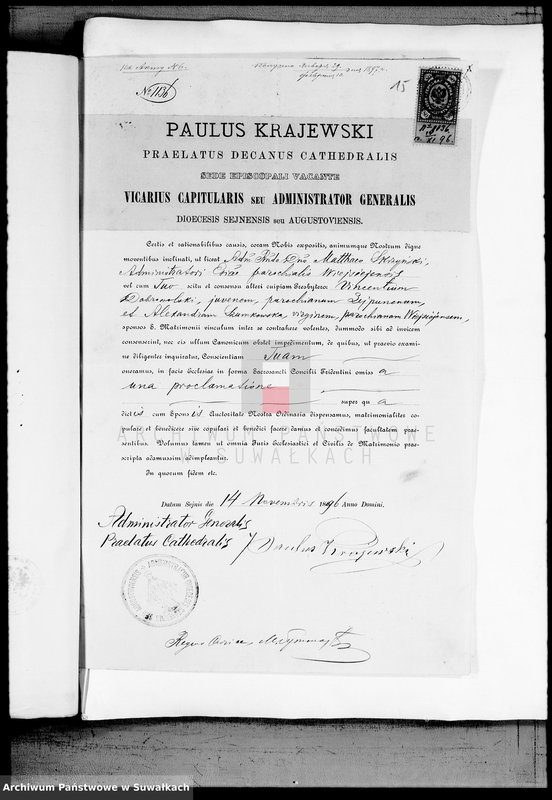 N. 1136
15
N 1136
96
PAULUS KRAJEWSKI
PRAELATUS DECANUS CATHEDRALIS
SEDE EPISCOPALI VACANTE
VICARIUS CAPITULARIS SEU ADMINISTRATOR GENERALIS
DIOECESIS SEJNENSIS SEU AUGUSTOVIENSIS.
Certis et rationabilibus causis, coram Nobis expositis, animumque Nostrum digne
moventibus inclinati, ut liceat Adm. Rndo Dno Matthaeo
Administratori Eccl parochialis
vel cum Tuo scitu et consensu alteri cuipiam Presbytero Vincentium
Dobrowolski, juvenem, parochianum Sejnensem,
et Alexandram virginem, parochianam
sponsos S. Matrimonii vinculum inter se contrahere volentes, dummodo sibi ad invicem
consenserint, nec eis ullum Canonicum obstet impedimentum, de quibus, ut praevio exami-
ne diligenter inquiratur, Conscientiam Tuam
oneramus, in facie Ecclesiae in forma Sacrosancti Concilii Tridentini omissa
una proclamatione
super qua
dictis cum Sponsis Auctoritate Nostra Ordinaria dispensamus, matrimonialiter co-
pulare et benedicere sive copulari et benedici facere damus et concedimus facultatem prae-
sentibus. Volumus tamen ut omnia Juris Ecclesiastici et Civilis de Matrimonio prae-
scripta adamussim adimpleantur.
In quorum fidem etc.
ARCHIWUM PAŃSTWOWE
W SUWAŁKACH
Datum Sejnis die 14 Novembris 1896 Anno Domini.
Administrator Generalis
Praelatus Cathedralis Paulus Krajewski
Archiwum Państwowe w Suwałkach